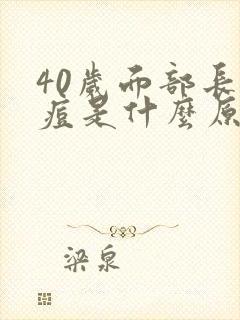 40歲面部長
痘是什麼原
梁泉